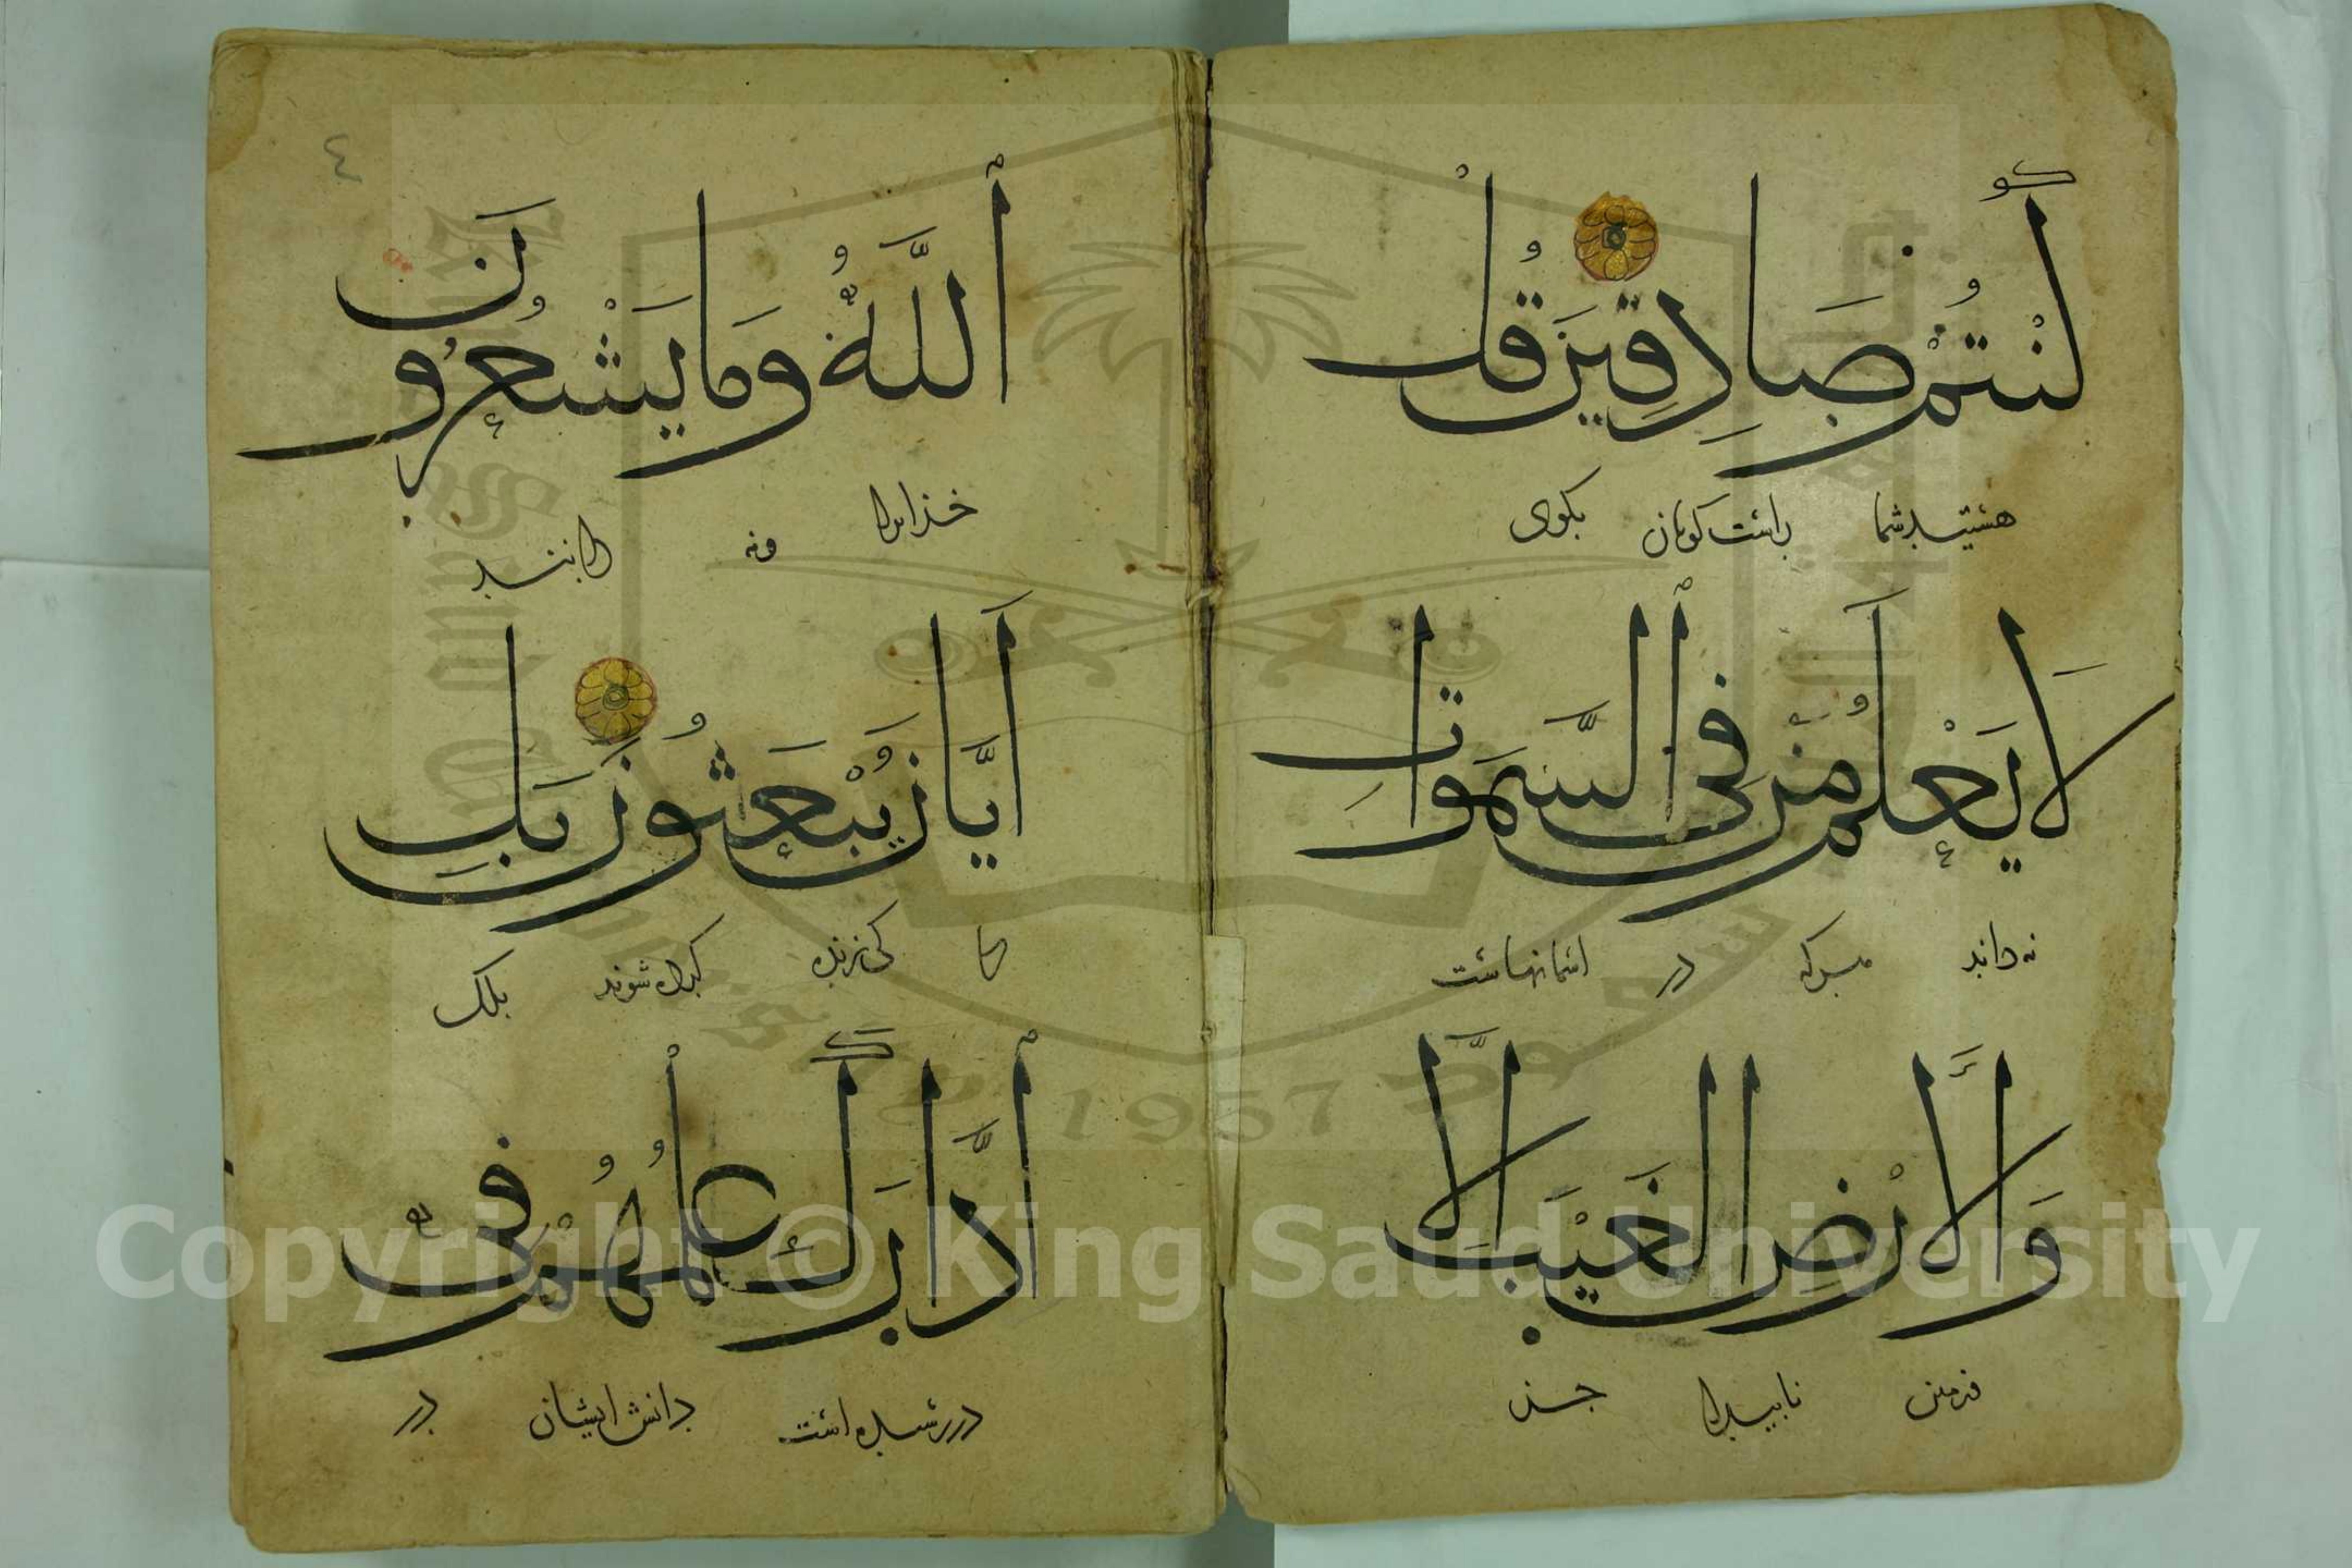 كُنْتُمْ صَادِقِينَ قُلْ
هستید شما راست کویان بکوی
لَا يَعْلَمُ مَنْ فِي ٱلسَّمَوَاتِ
نه داند هرکه در اسمانهاست
وَالْأَرْضِ الْغَيْبَ إِلَّا
و زمین ناپیدا جز
٤
ٱللَّهُ وَمَا يَشْعُرُونَ
خدایرا ونه دانند
أَيَّانَ يُبْعَثُونَ بَلِ
تا کی زنده کرده شوند بلک
ٱدَّارَكَ عِلْمُهُمْ فِي
در رسیده است دانش ایشان در
1957
Copyright © King Saud University